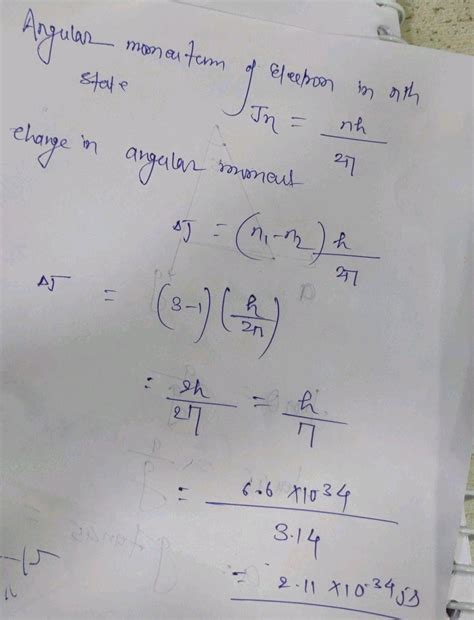 Angular momentum of Electron in nth
state
Jn = nh/2π
change in angular moment
ΔJ = (n1-n2) h/2π
ΔJ = (3-1) (h/2π)
= 2h/2π = h/π
= 6.6 ×10 34/3.14
= 2.11 ×10-34 js